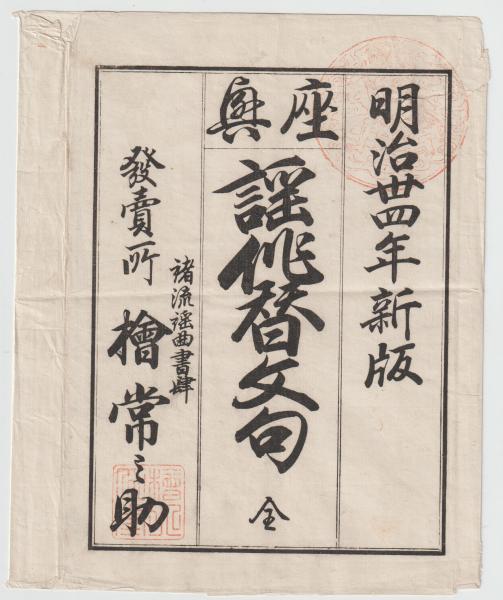 明治卅四年新版
座興
謡俳替文句
全
諸流謡曲書肆
發賣所
檜常之助